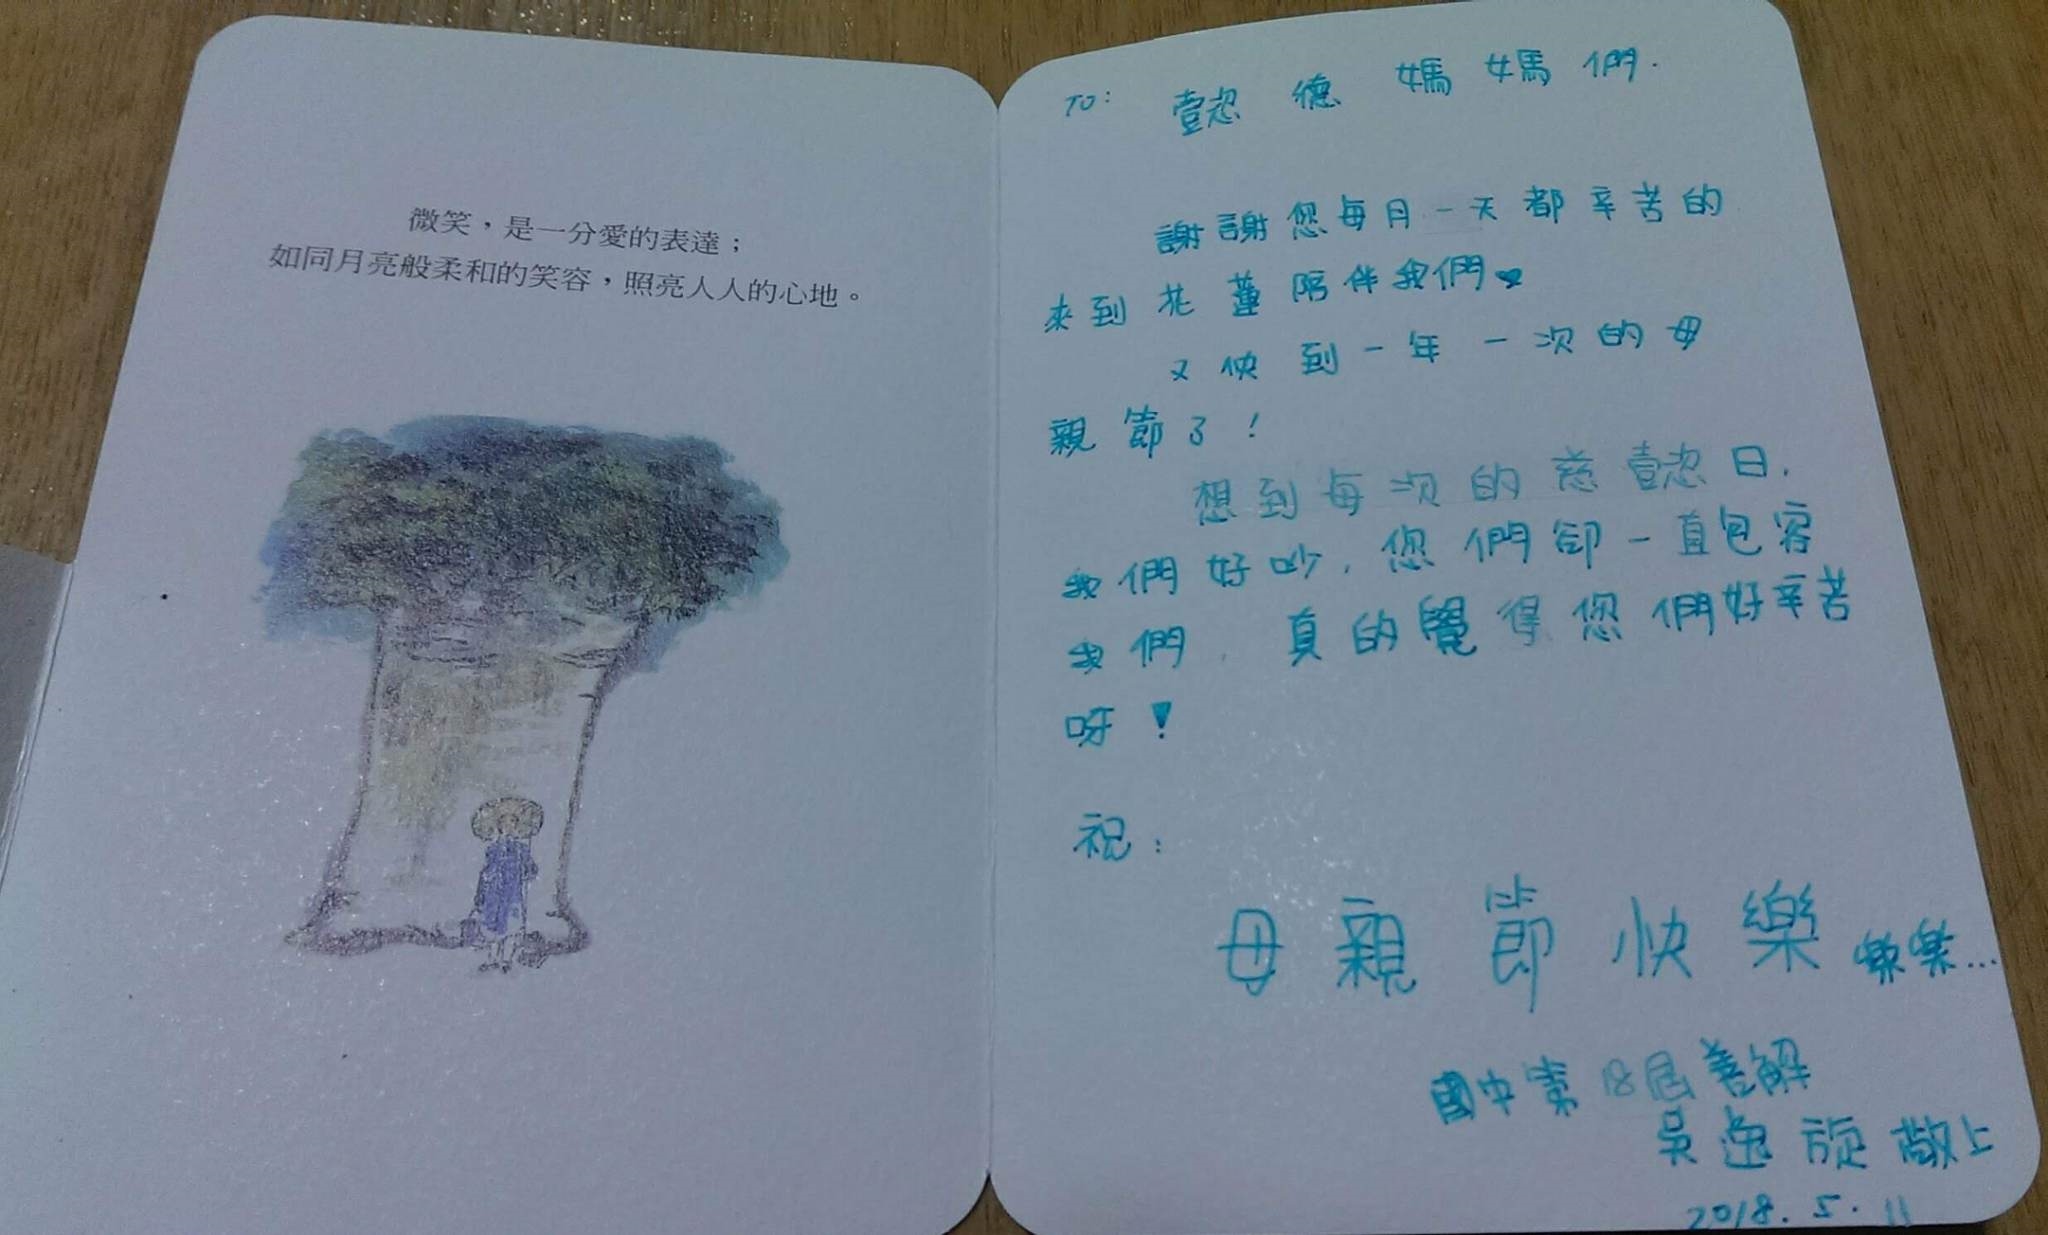 微笑，是一分愛的表達；
如同月亮般柔和的笑容，照亮人人的心地。
TO: 懿德媽媽們.
謝謝您每月一天都辛苦的
來到花蓮陪伴我們♥
又快到一年一次的母
親節了！
想到每次的慈懿日,
我們好吵,您們卻一直包容
我們,真的覺得您們好辛苦
呀！
祝：
母親節快樂樂樂...
國中第18屆善解
吳逸旋敬上
2018.5.11